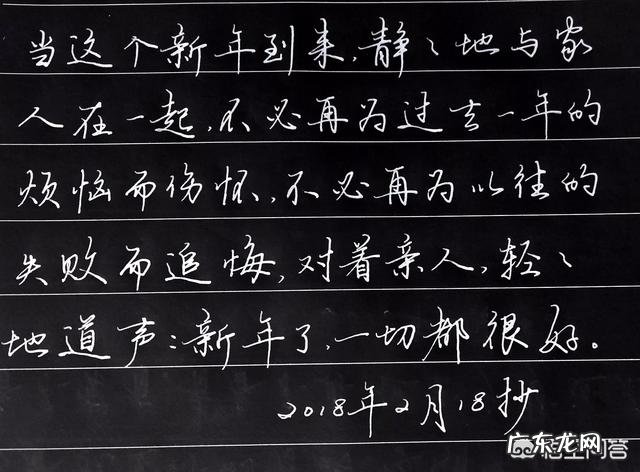 当这个新年到来,静々地与家
人在一起,不必再为过去一年的
烦恼而伤怀,不必再为以往的
失败而追悔,对着亲人,轻々
地道声:新年了,一切都很好。
2018年2月18抄
广东龙网
悟空问答